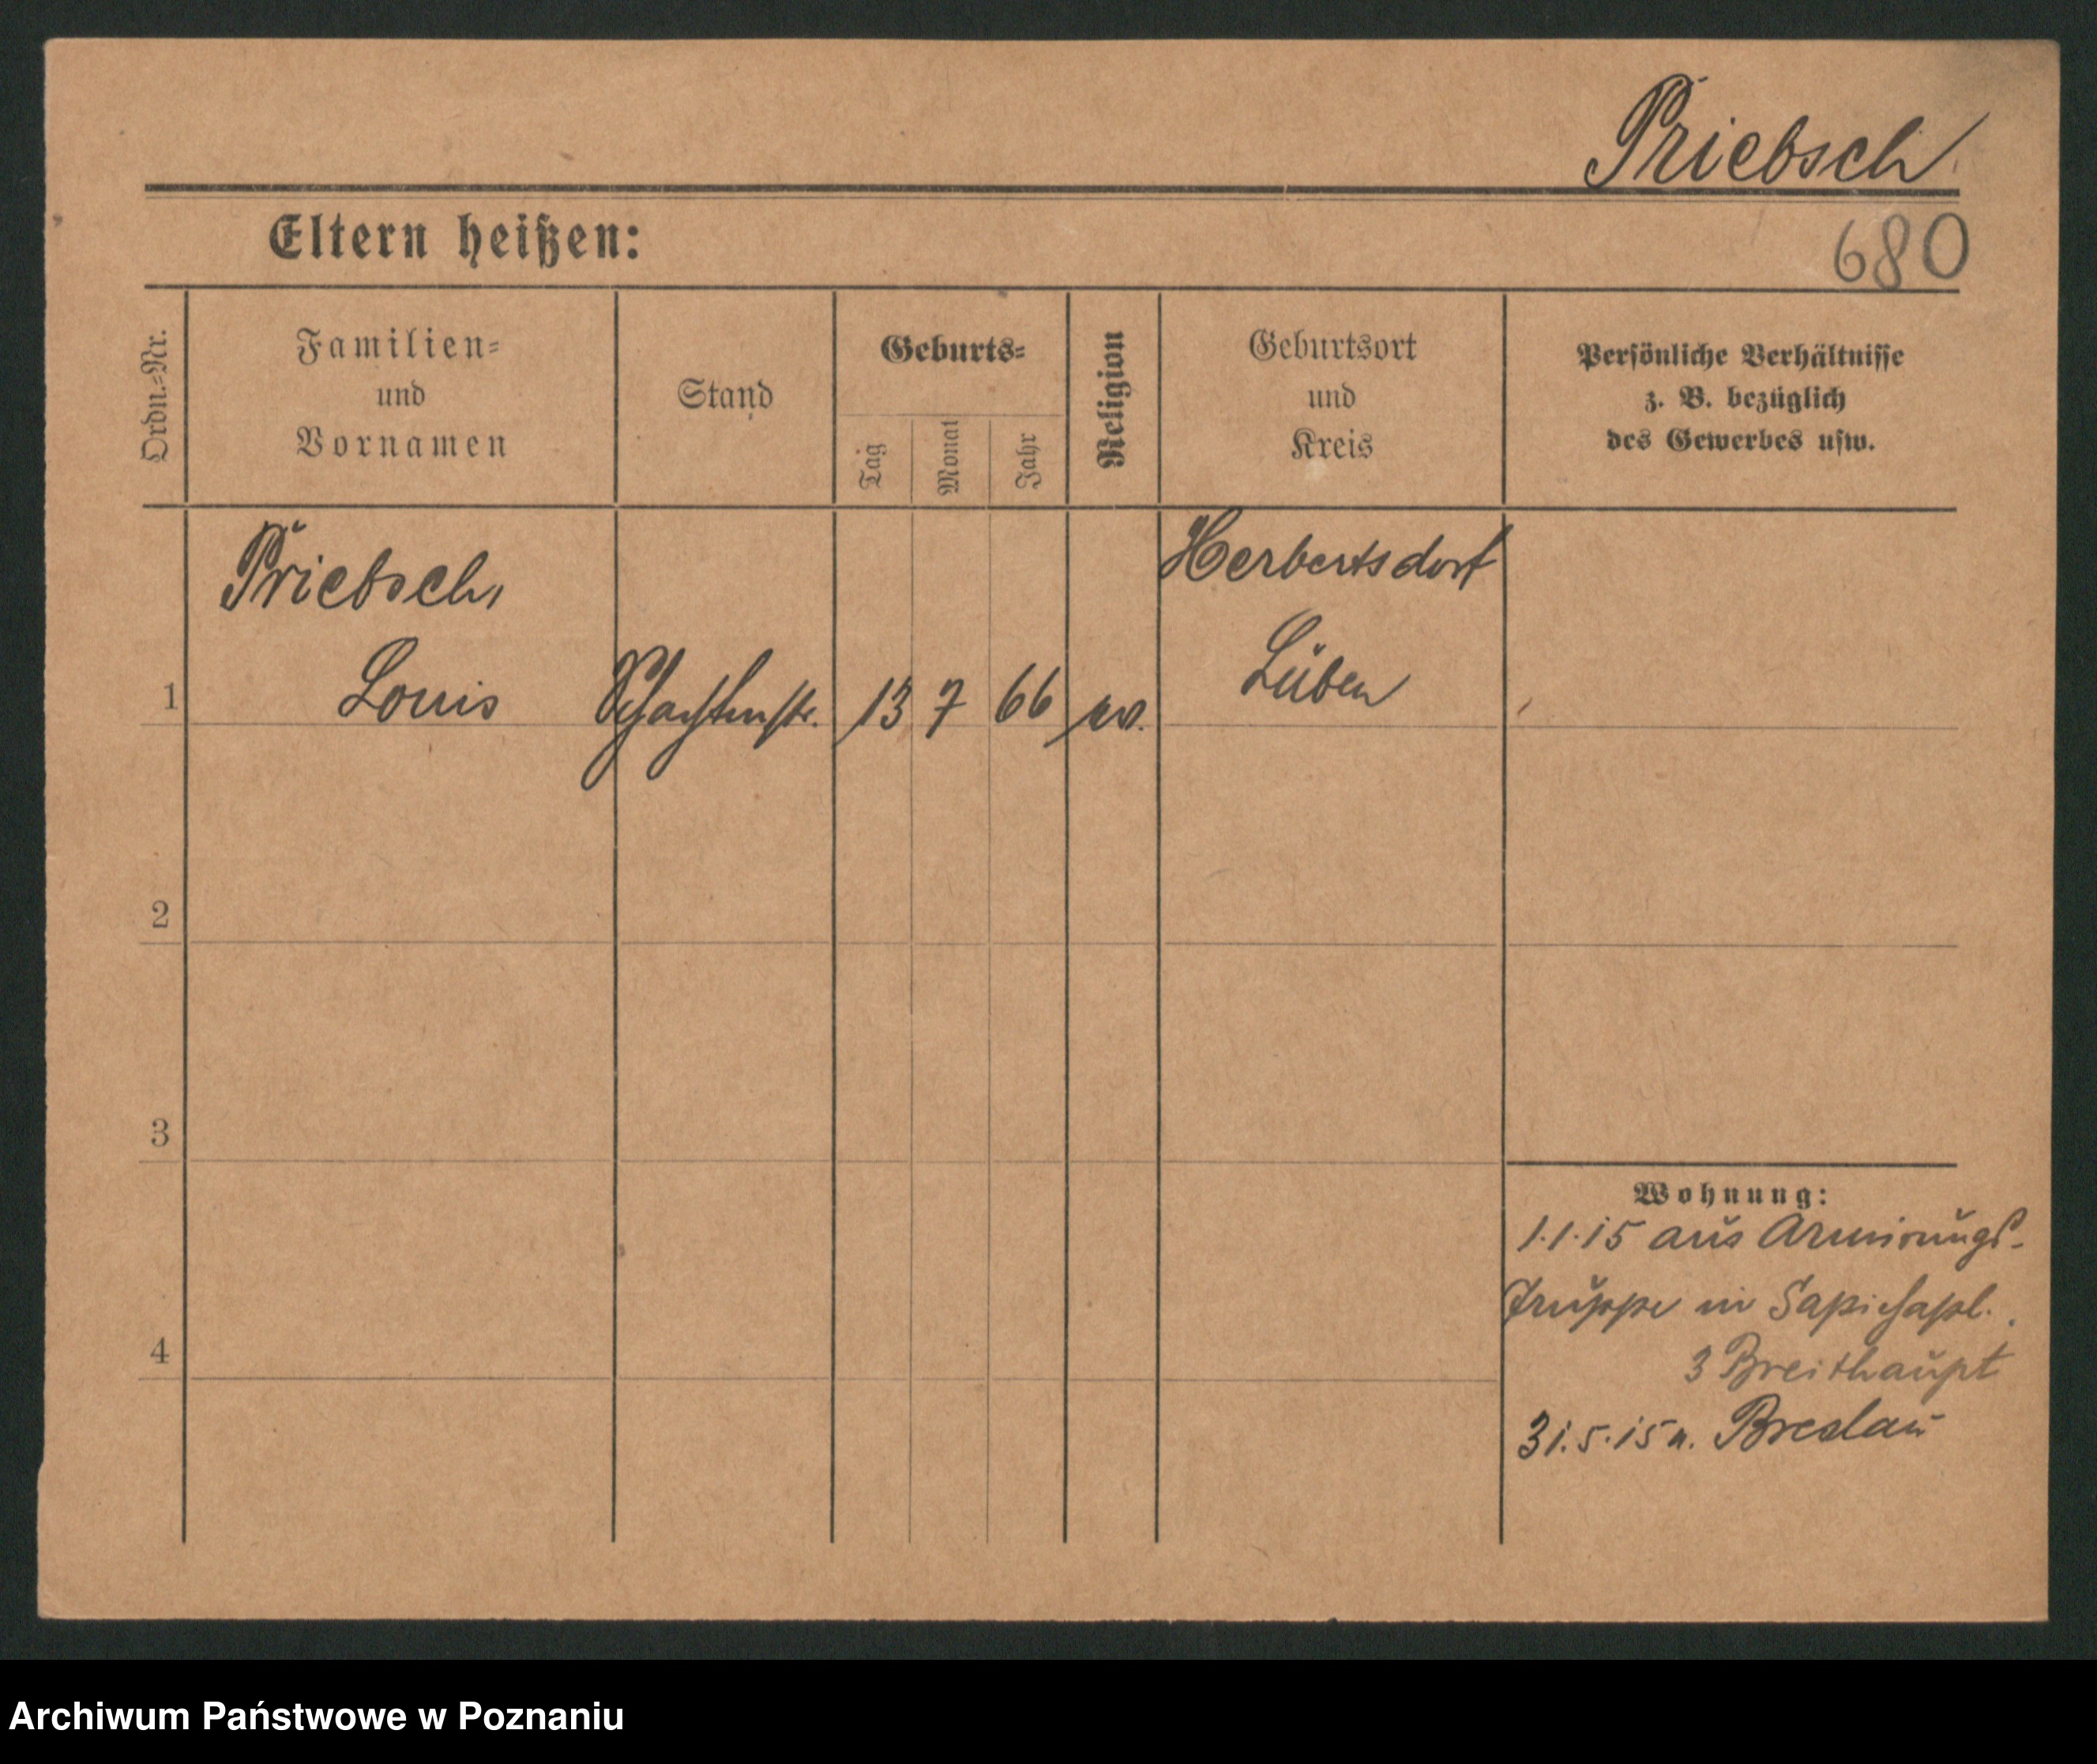 Priebsch
680
Eltern heißen:
Ordn.-Nr.
Familien-
und
Vornamen
Stand
Geburts-
Tag
Monat
Jahr
Religion
Geburtsort
und
Kreis
Persönliche Verhältnisse
z. B. bezüglich
des Gewerbes usw.
Priebsch,
Louis
1
Schachtmstr.
13
7
66
ev.
Herbertsdorf
Lüben
2
3
4
Wohnung:
1.1.15 aus Armirungs-
truppe in Sapiehapl.
3 Breithaupt
31.5.15 n. Breslau
Archiwum Państwowe w Poznaniu